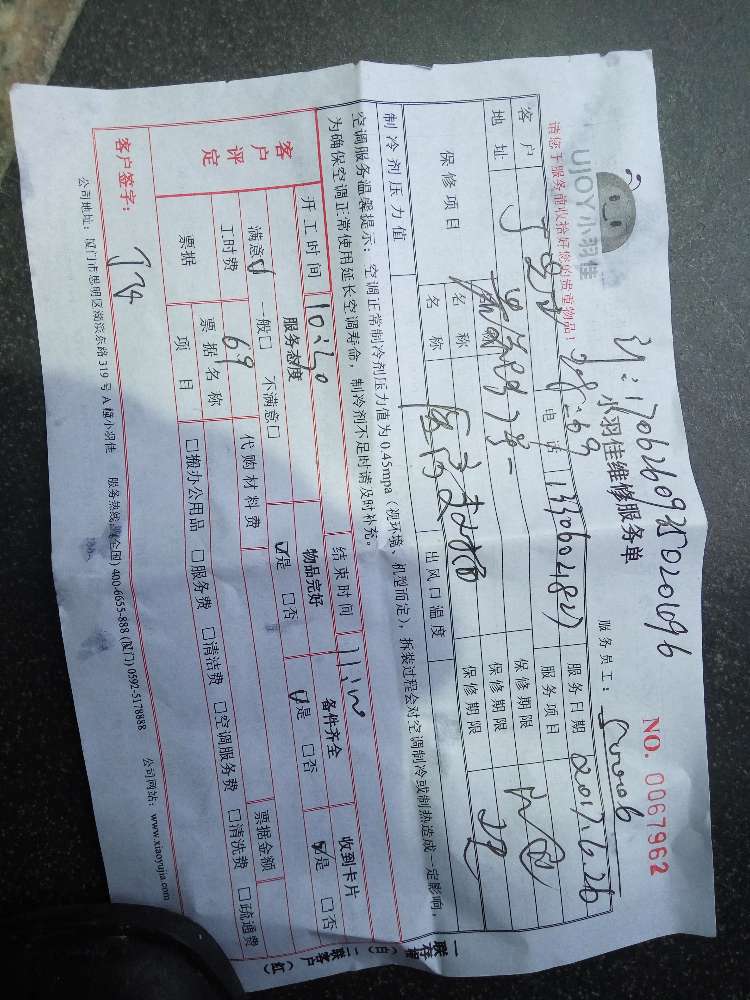 UJOY小羽佳
小羽佳维修服务单
NO. 0067962
请您于服务前收拾好您的贵重物品!
服务员工:
客户 电话 服务日期 2017.6.26
地址 服务项目
保修项目 名称 保修期限
名称 保修期限
制冷剂压力值 出风口温度 保修期限
空调服务温馨提示: 空调正常制冷剂压力值为0.45mpa (视环境、机型而定), 拆装过程会对空调制冷或制热造成一定影响,
为确保空调正常使用延长空调寿命, 制冷剂不足时请及时补充。
开工时间 10:30 结束时间
客户评定 服务态度 物品完好 备件齐全 收到卡片
满意☑ 一般□ 不满意□ ☑是 □否 ☑是 □否 ☑是 □否
工时费 69 代购材料费 票据金额
票据 票据名称
项目 □搬办公用品 □服务费 □清洁费 □空调服务费 □清洗费 □疏通费
客户签字:
公司地址: 厦门市思明区湖滨东路319号A幢小羽佳 服务热线:(全国) 400-6655-888 (厦门) 0592-5178888 公司网站: www.xiaoyujia.com
一联存根 (白) 二联客户 (红)